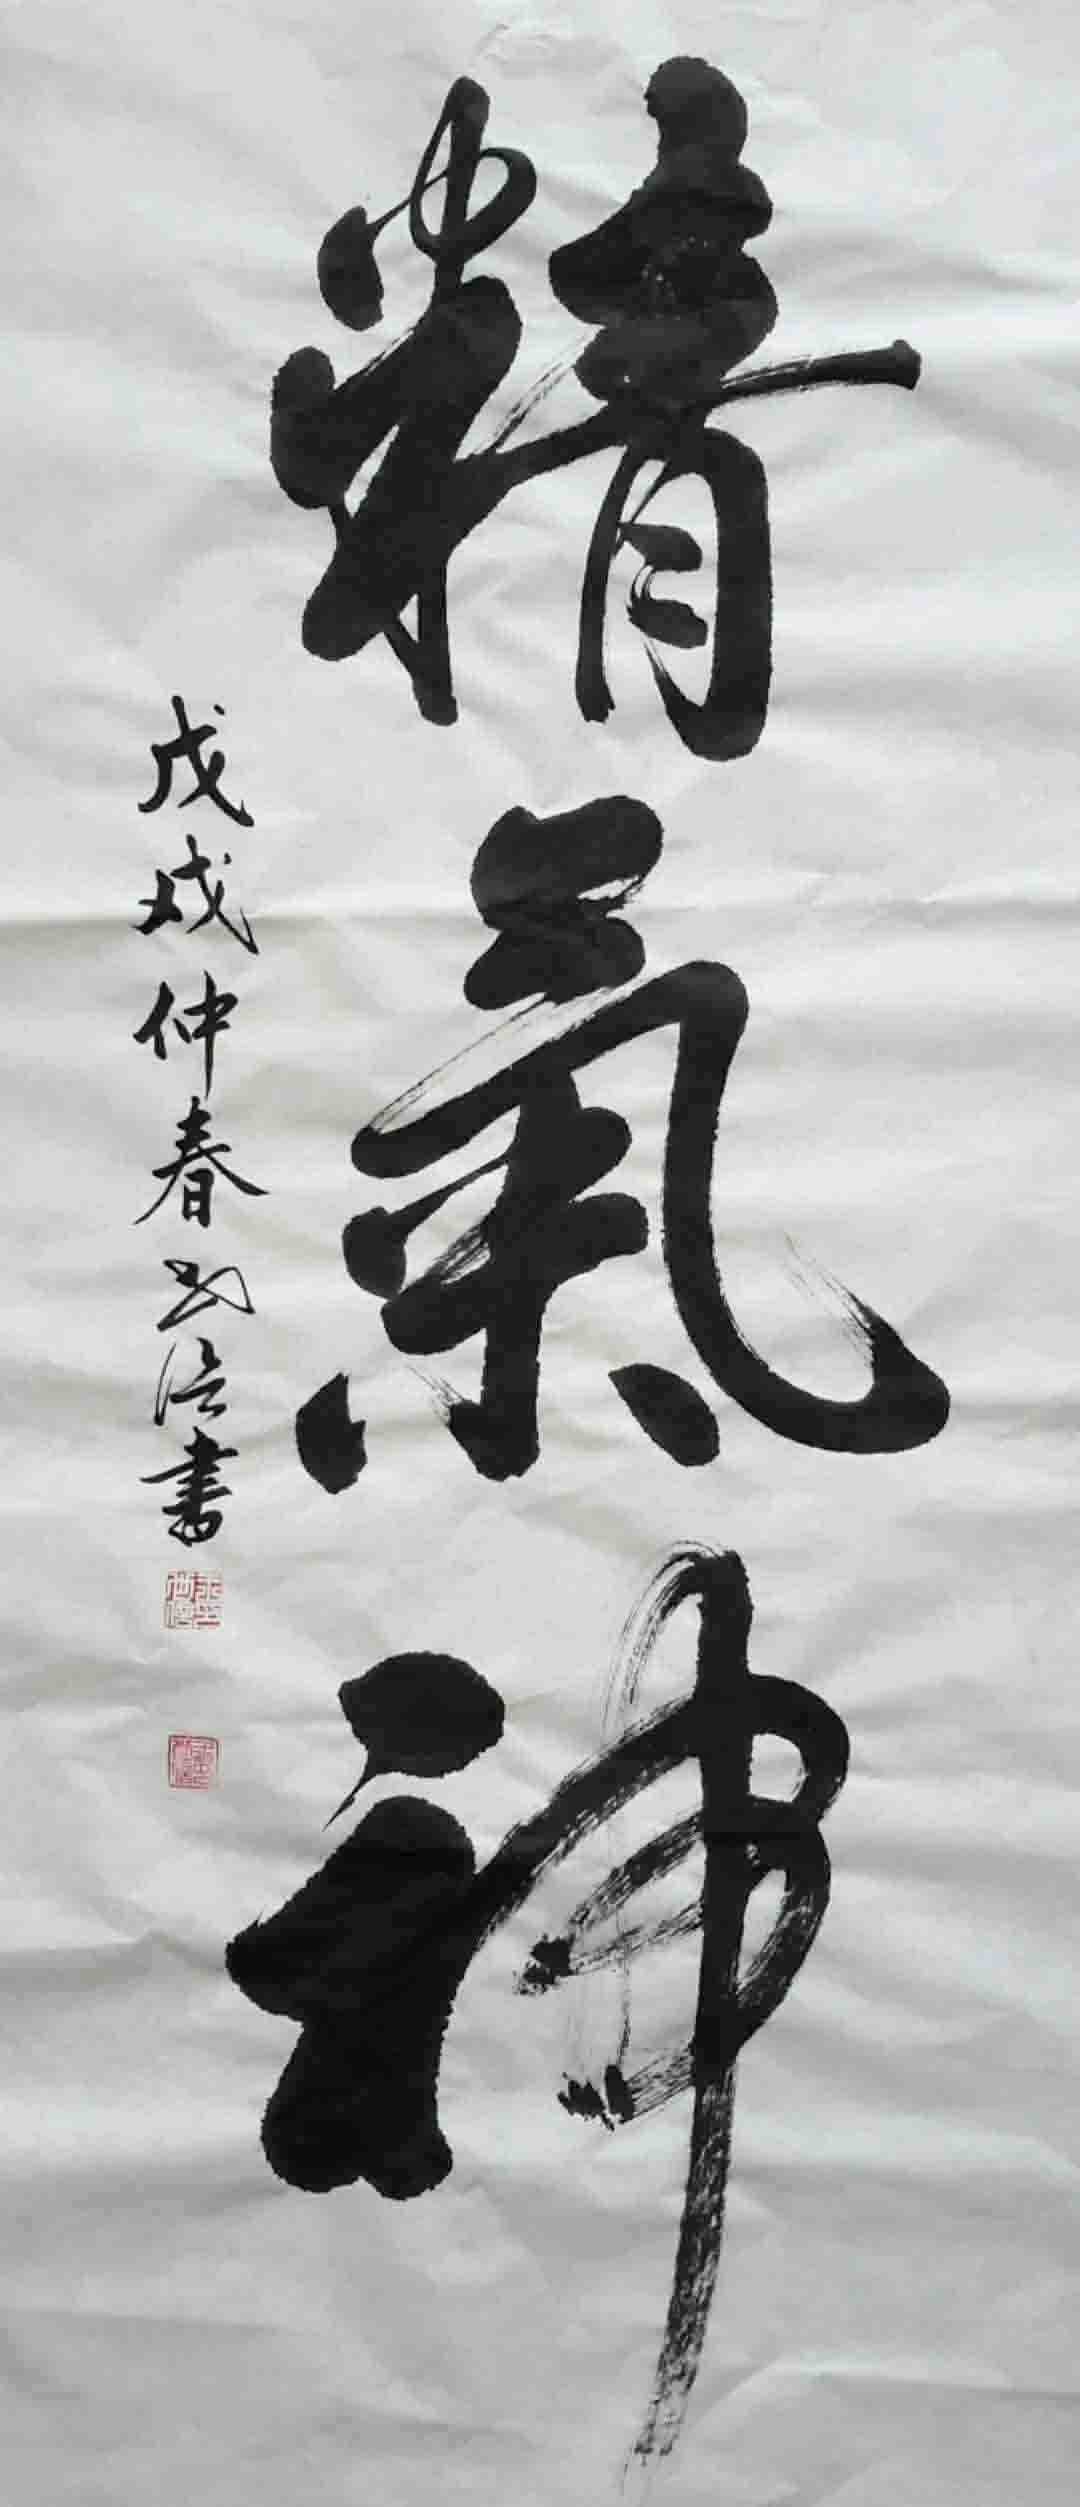 精氣神
戊戌仲春 書